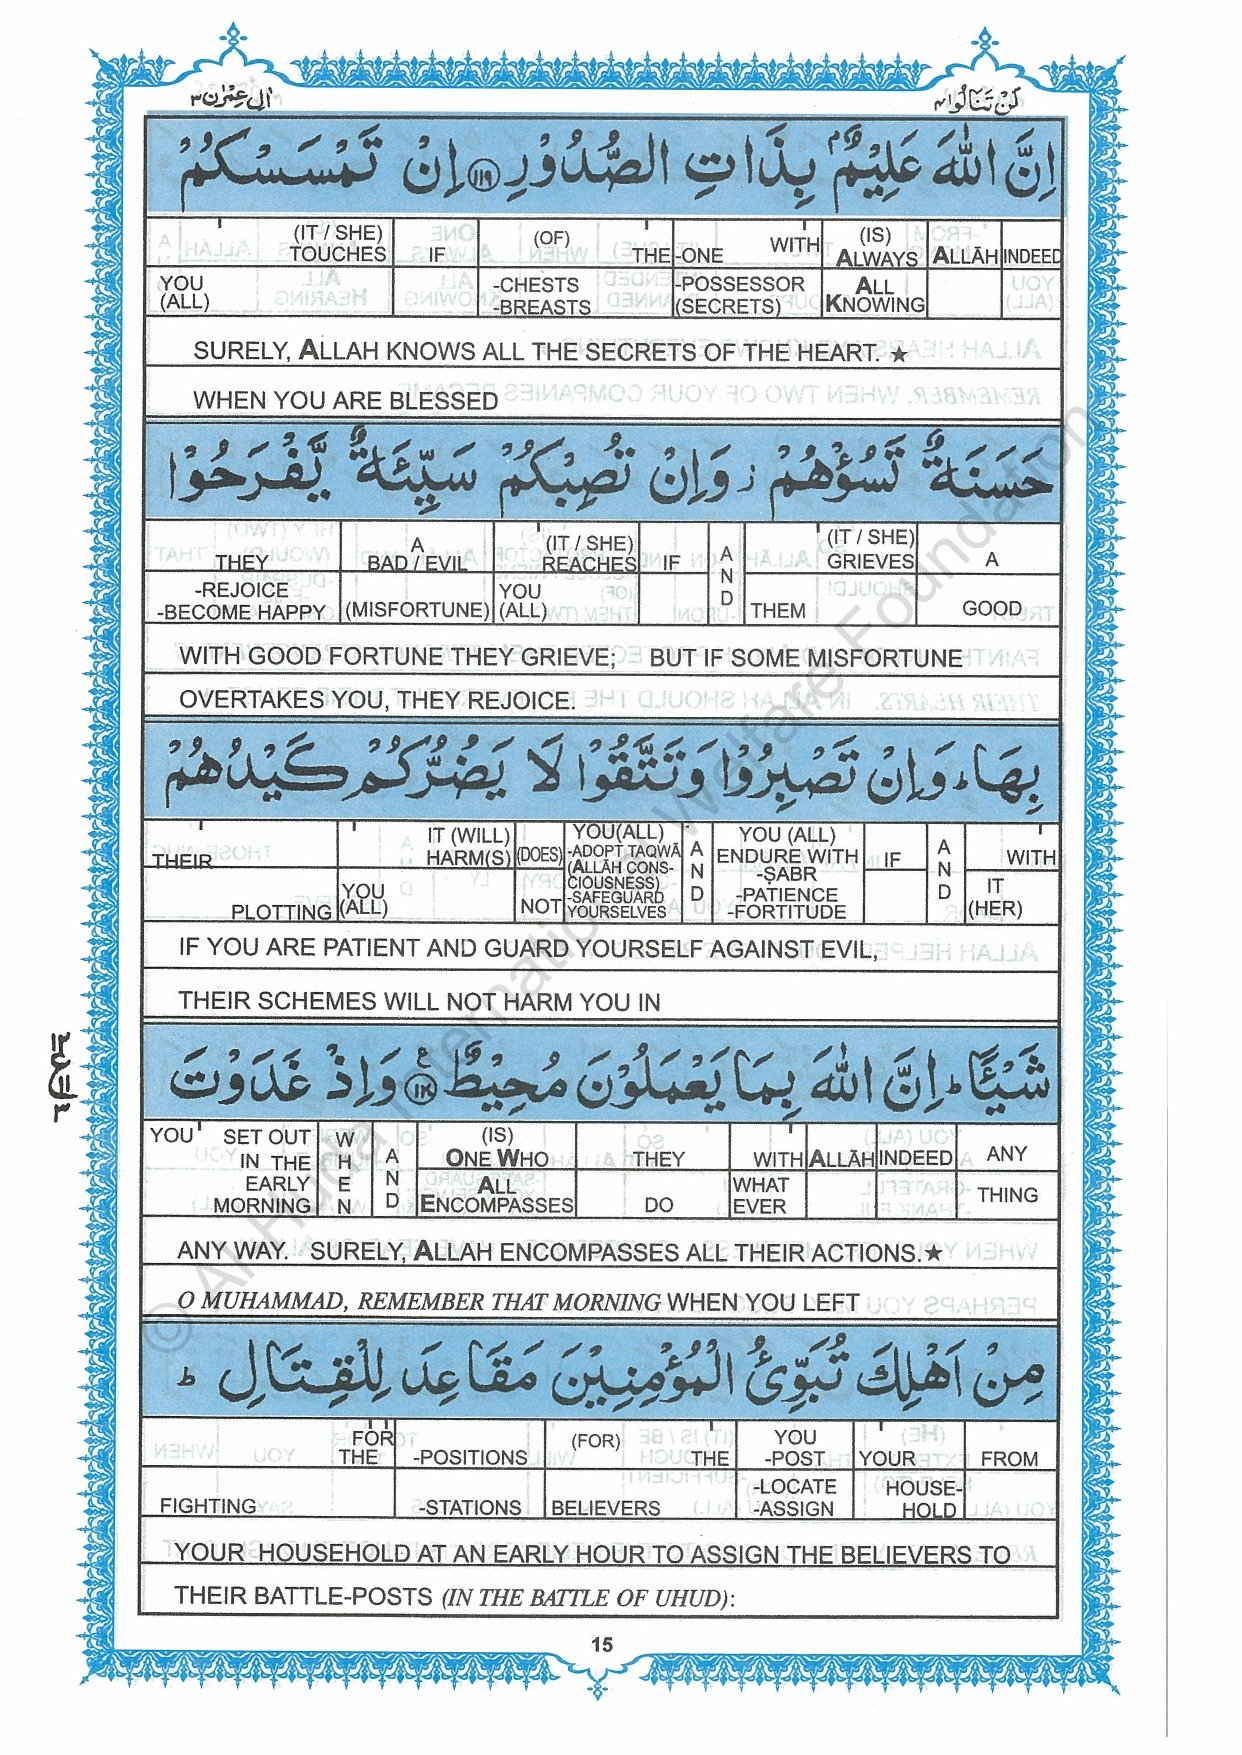 اٰل عمرٰن ٣
لن تنالوا ٤
اِنَّ اللّٰهَ عَلِيْمٌۢ بِذَاتِ الصُّدُوْرِ ١١٩ اِنْ تَمْسَسْكُمْ
(IT / SHE) TOUCHES IF (OF) THE -ONE WITH (IS) ALWAYS ALLĀH INDEED
YOU (ALL) -CHESTS -BREASTS -POSSESSOR (SECRETS) ALL KNOWING
SURELY, ALLAH KNOWS ALL THE SECRETS OF THE HEART. ★
WHEN YOU ARE BLESSED
حَسَنَةٌ تَسُؤْهُمْ ز وَاِنْ تُصِبْكُمْ سَيِّئَةٌ يَّفْرَحُوْا
THEY A BAD / EVIL (IT / SHE) REACHES IF AND (IT / SHE) GRIEVES A
-REJOICE -BECOME HAPPY (MISFORTUNE) YOU (ALL) THEM GOOD
WITH GOOD FORTUNE THEY GRIEVE; BUT IF SOME MISFORTUNE
OVERTAKES YOU, THEY REJOICE.
بِهَا ؕ وَاِنْ تَصْبِرُوْا وَتَتَّقُوْا لَا يَضُرُّكُمْ كَيْدُهُمْ
THEIR IT (WILL) HARM(S) (DOES) YOU(ALL) -ADOPT TAQWĀ (ALLĀH CONS-CIOUSNESS) -SAFEGUARD YOURSELVES AND YOU (ALL) ENDURE WITH -ṢABR -PATIENCE -FORTITUDE IF AND WITH
PLOTTING YOU (ALL) NOT IT (HER)
IF YOU ARE PATIENT AND GUARD YOURSELF AGAINST EVIL,
THEIR SCHEMES WILL NOT HARM YOU IN
شَيْـًٔا ؕ اِنَّ اللّٰهَ بِمَا يَعْمَلُوْنَ مُحِيْطٌ ١٢٠ ع وَاِذْ غَدَوْتَ
YOU SET OUT IN THE EARLY MORNING WHEN AND (IS) ONE WHO THEY WITH ALLĀH INDEED ANY
ALL ENCOMPASSES DO WHAT EVER THING
ANY WAY. SURELY, ALLAH ENCOMPASSES ALL THEIR ACTIONS.★
O MUHAMMAD, REMEMBER THAT MORNING WHEN YOU LEFT
مِنْ اَهْلِكَ تُبَوِّئُ الْمُؤْمِنِيْنَ مَقَاعِدَ لِلْقِتَالِ ؕ
FOR THE -POSITIONS (FOR) THE YOU -POST YOUR FROM
FIGHTING -STATIONS BELIEVERS -LOCATE -ASSIGN HOUSE-HOLD
YOUR HOUSEHOLD AT AN EARLY HOUR TO ASSIGN THE BELIEVERS TO
THEIR BATTLE-POSTS (IN THE BATTLE OF UHUD):
15
© Al Huda International Welfare Foundation